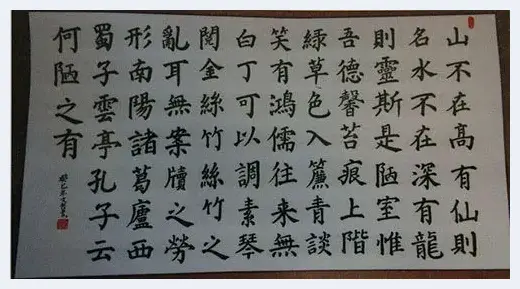 山不在高有仙則
名水不在深有龍
則靈斯是陋室惟
吾德馨苔痕上階
綠草色入簾青談
笑有鴻儒往來無
白丁可以調素琴
閱金絲竹絲竹之
亂耳無案牘之勞
形南陽諸葛廬西
蜀子雲亭孔子云
何陋之有
癸巳